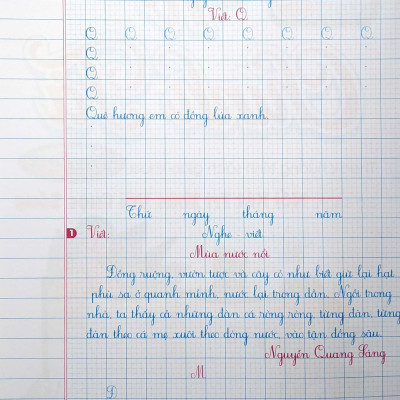 Viết: Q
Q Q Q Q Q Q Q Q
Q
Q
Q
Quê hương em có đồng lúa xanh.
Thứ ngày tháng năm
1 Viết: Nghe viết
Mùa nước nổi
Đồng ruộng, vườn tược và cây cỏ như biết giữ lại hạt
phù sa ở quanh mình, nước lại trong dần. Ngồi trong
nhà, ta thấy cả những đàn cá ròng ròng, từng đàn, từng
đàn theo cá mẹ xuôi theo dòng nước, vào tận đồng sâu.
Nguyễn Quang Sáng
M